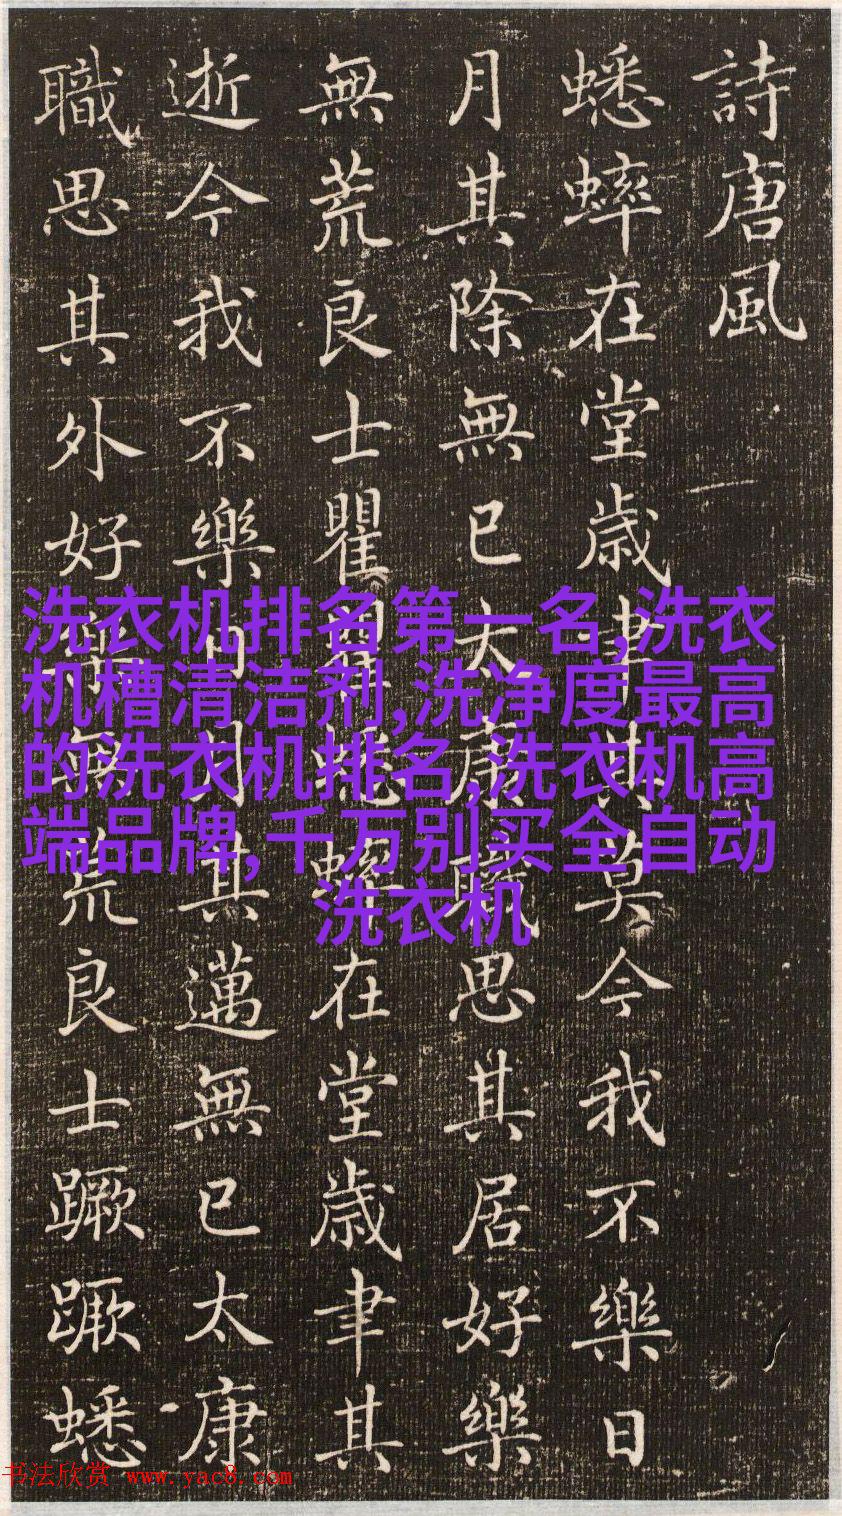 詩唐風
蟋蟀在堂歳聿其莫今我不樂日
月其除無已太康職思其居好樂
無荒良士瞿瞿蟋蟀在堂歳聿其
逝今我不樂日月其邁無已太康
職思其外好樂無荒良士蹶蹶蟋
洗衣机排名第一名,洗衣
机槽清洁剂,洗净度最高
的洗衣机排名,洗衣机高
端品牌,千万别买全自动
洗衣机
书法欣赏 www.yac8.com